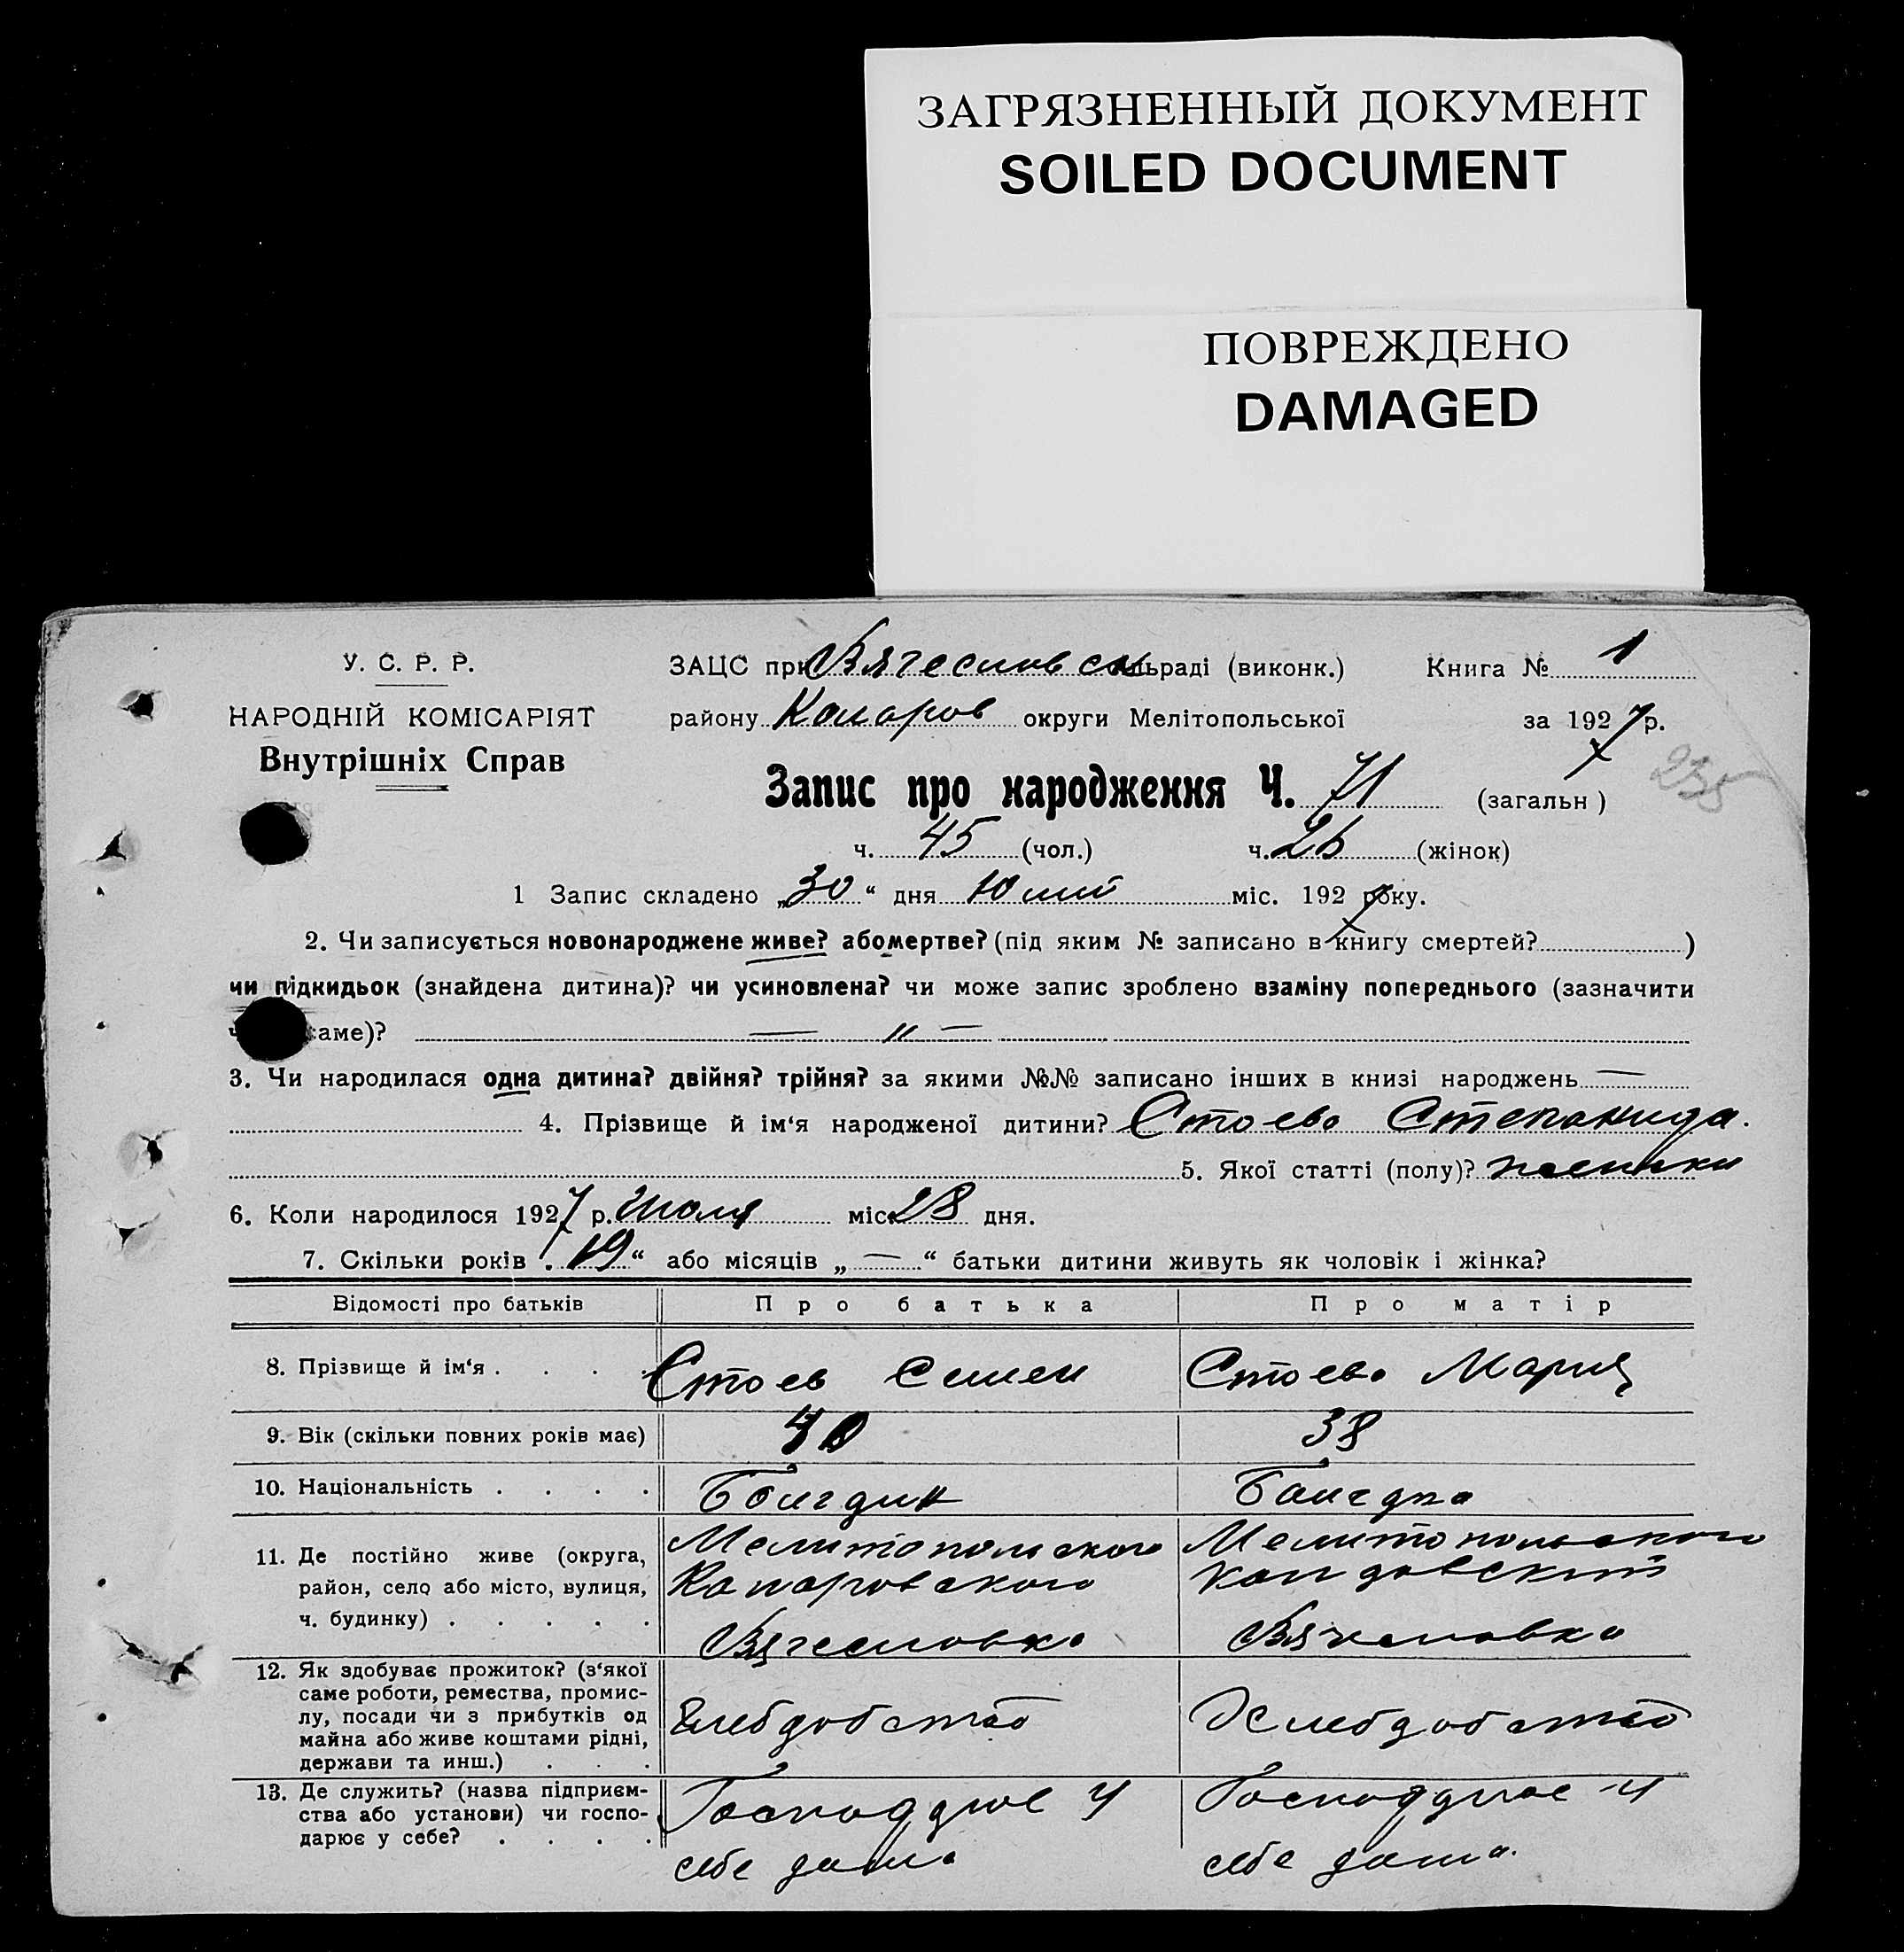 ЗАГРЯЗНЕННЫЙ ДОКУМЕНТ
SOILED DOCUMENT
ПОВРЕЖДЕНО
DAMAGED
У. С. Р. Р.
НАРОДНІЙ КОМІСАРІЯТ
Внутрішніх Справ
ЗАЦС при Вячеславск льраді (виконк.) Книга № 1
району Коларов округи Мелітопольської за 1927 р.
235
Запис про народження Ч. 71 (загальн)
ч. 45 (чол.) ч. 26 (жінок)
1 Запис складено „30“ дня Юлий міс. 1927 року.
2. Чи записується новонароджене живе? або мертве? (під яким № записано в книгу смертей? )
чи підкидьок (знайдена дитина)? чи усиновлена? чи може запис зроблено взаміну попереднього (зазначити
саме)? — " —
3. Чи народилася одна дитина? двійня? трійня? за якими №№ записано інших в книзі народжень —
4. Прізвище й ім‘я народженої дитини? Стоева Степанида.
5. Якої статті (полу)?
6. Коли народилося 1927 р. Июля міс 28 дня.
7. Скільки років 19“ або місяців „—“ батьки дитини живуть як чоловік і жінка?
Відомості про батьків Про батька Про матір
8. Прізвище й ім‘я . . . . Стоев Семен Стоева Мария
9. Вік (скільки повних років має) 40 38
10. Національність . . . . Болгарин Болгарка
11. Де постійно живе (округа, район, село або місто, вулиця, ч. будинку) . . . . .
Мелитопольского Мелитопольского
Коларовского
Вячеславка Вячеславка
12. Як здобуває прожиток? (з‘якої саме роботи, ремества, промислу, посади чи з прибутків од майна або живе коштами рідні, держави та инш.) . . .
Хлебдобство Хлебдобство
13. Де служить? (назва підприємства або установи) чи господарює у себе? . . . .
Господдрює У Господдрює У
себе дома себе дома.